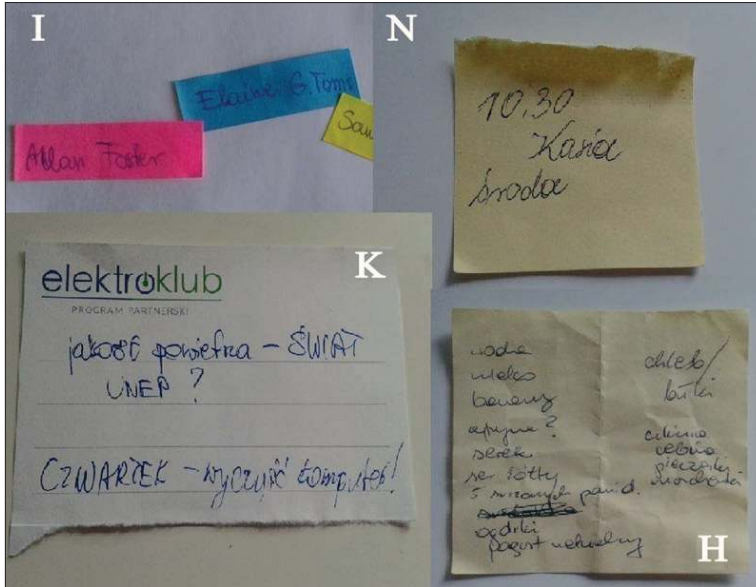 I
Elaine G. Toms
Allan Foster
N
10.30
Kasia
środa
K
elektroklub
PROGRAM PARTNERSKI
jakość powietrza – ŚWIAT
UNEP ?
CZWARTEK – wyczyść komputer!
woda
mleko
banany
serek
ser żółty
5 suszonych pomid.
ogórki
jogurt naturalny
chleb/
bułki
cukinia
cebula
pieczarki
H